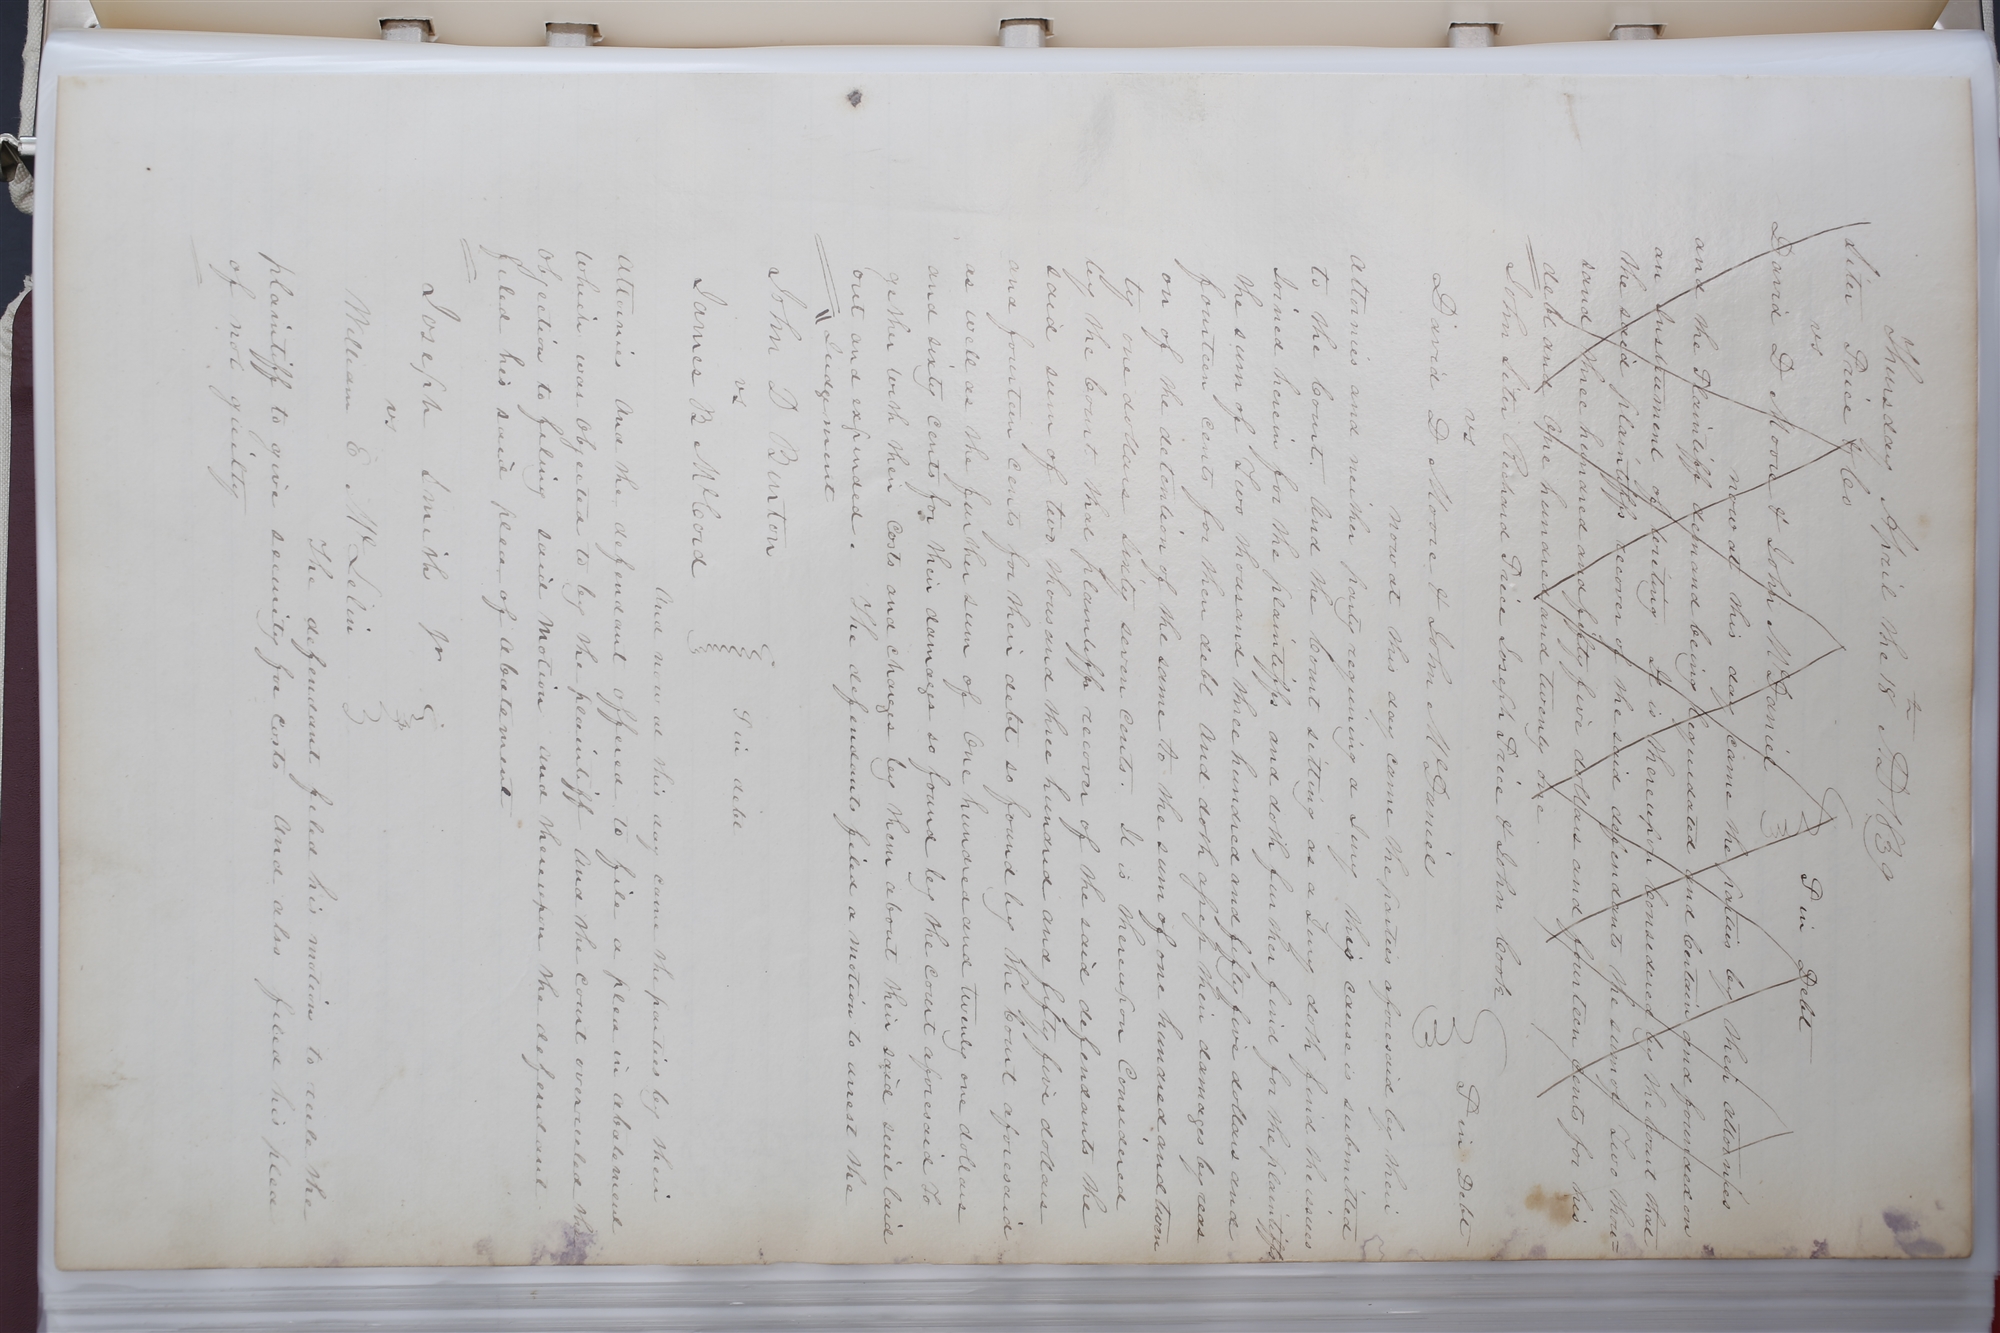 Thursday April the 18th A D 1839
Siter Price & Co
vs
David D Moore & John McDaniel } P in Debt
now at this day came the parties by their attornies
and the Plaintiff demand being liquidated and certain and founded on
an Instrument of writing It is thereupon Considered by the Court that
the said plaintiffs recover of the said defendants the sum of Two thou=
sand three hundred and fifty five dollars and fourteen cents for his
debt and One hundred and twenty one
John Siter Richard Price Joseph Price & John Cook
vs
David D Moore & John McDaniel } P in Debt
now at this day came the parties aforesaid by their
attornies and neither party requiring a Jury this cause is submitted
to the Court. And the Court sitting as a Jury doth find the issues
Joined herein for the plaintiffs and doth further find for the plaintiffs
the sum of Two thousand three hundred and fifty five dollars and
fourteen cents for their debt And doth assess their damages by reas
on of the detention of the same to the sum of one hundred and twen
ty one dollars sixty seven cents. It is thereupon Considered
by the Court that plaintiffs recover of the said defendants the
said sum of two thousand three hundred and fifty five dollars
and fourteen cents for their debt so found by the Court aforesaid
as well as the further sum of One hundred and twenty one dollars
and sixty cents for their damages so found by the Court aforesaid to
gether with their costs and charges by them about their said suit laid
out and expended. The defendants filed a motion to arrest the
" Judgment
John D Burton
vs
James B McCord } P in debt
And now at this day came the parties by their
attornies And the defendant offered to file a plea in abatement
which was Objected to by the plaintiff And the Court overruled the
Objection to filing said motion and thereupon the defendant
filed his said plea of abatement
Joseph Smith Jr
vs
William E McLelin
The defendant filed his motion to rule the
plaintiff to give security for costs and also filed his plea
of not guilty